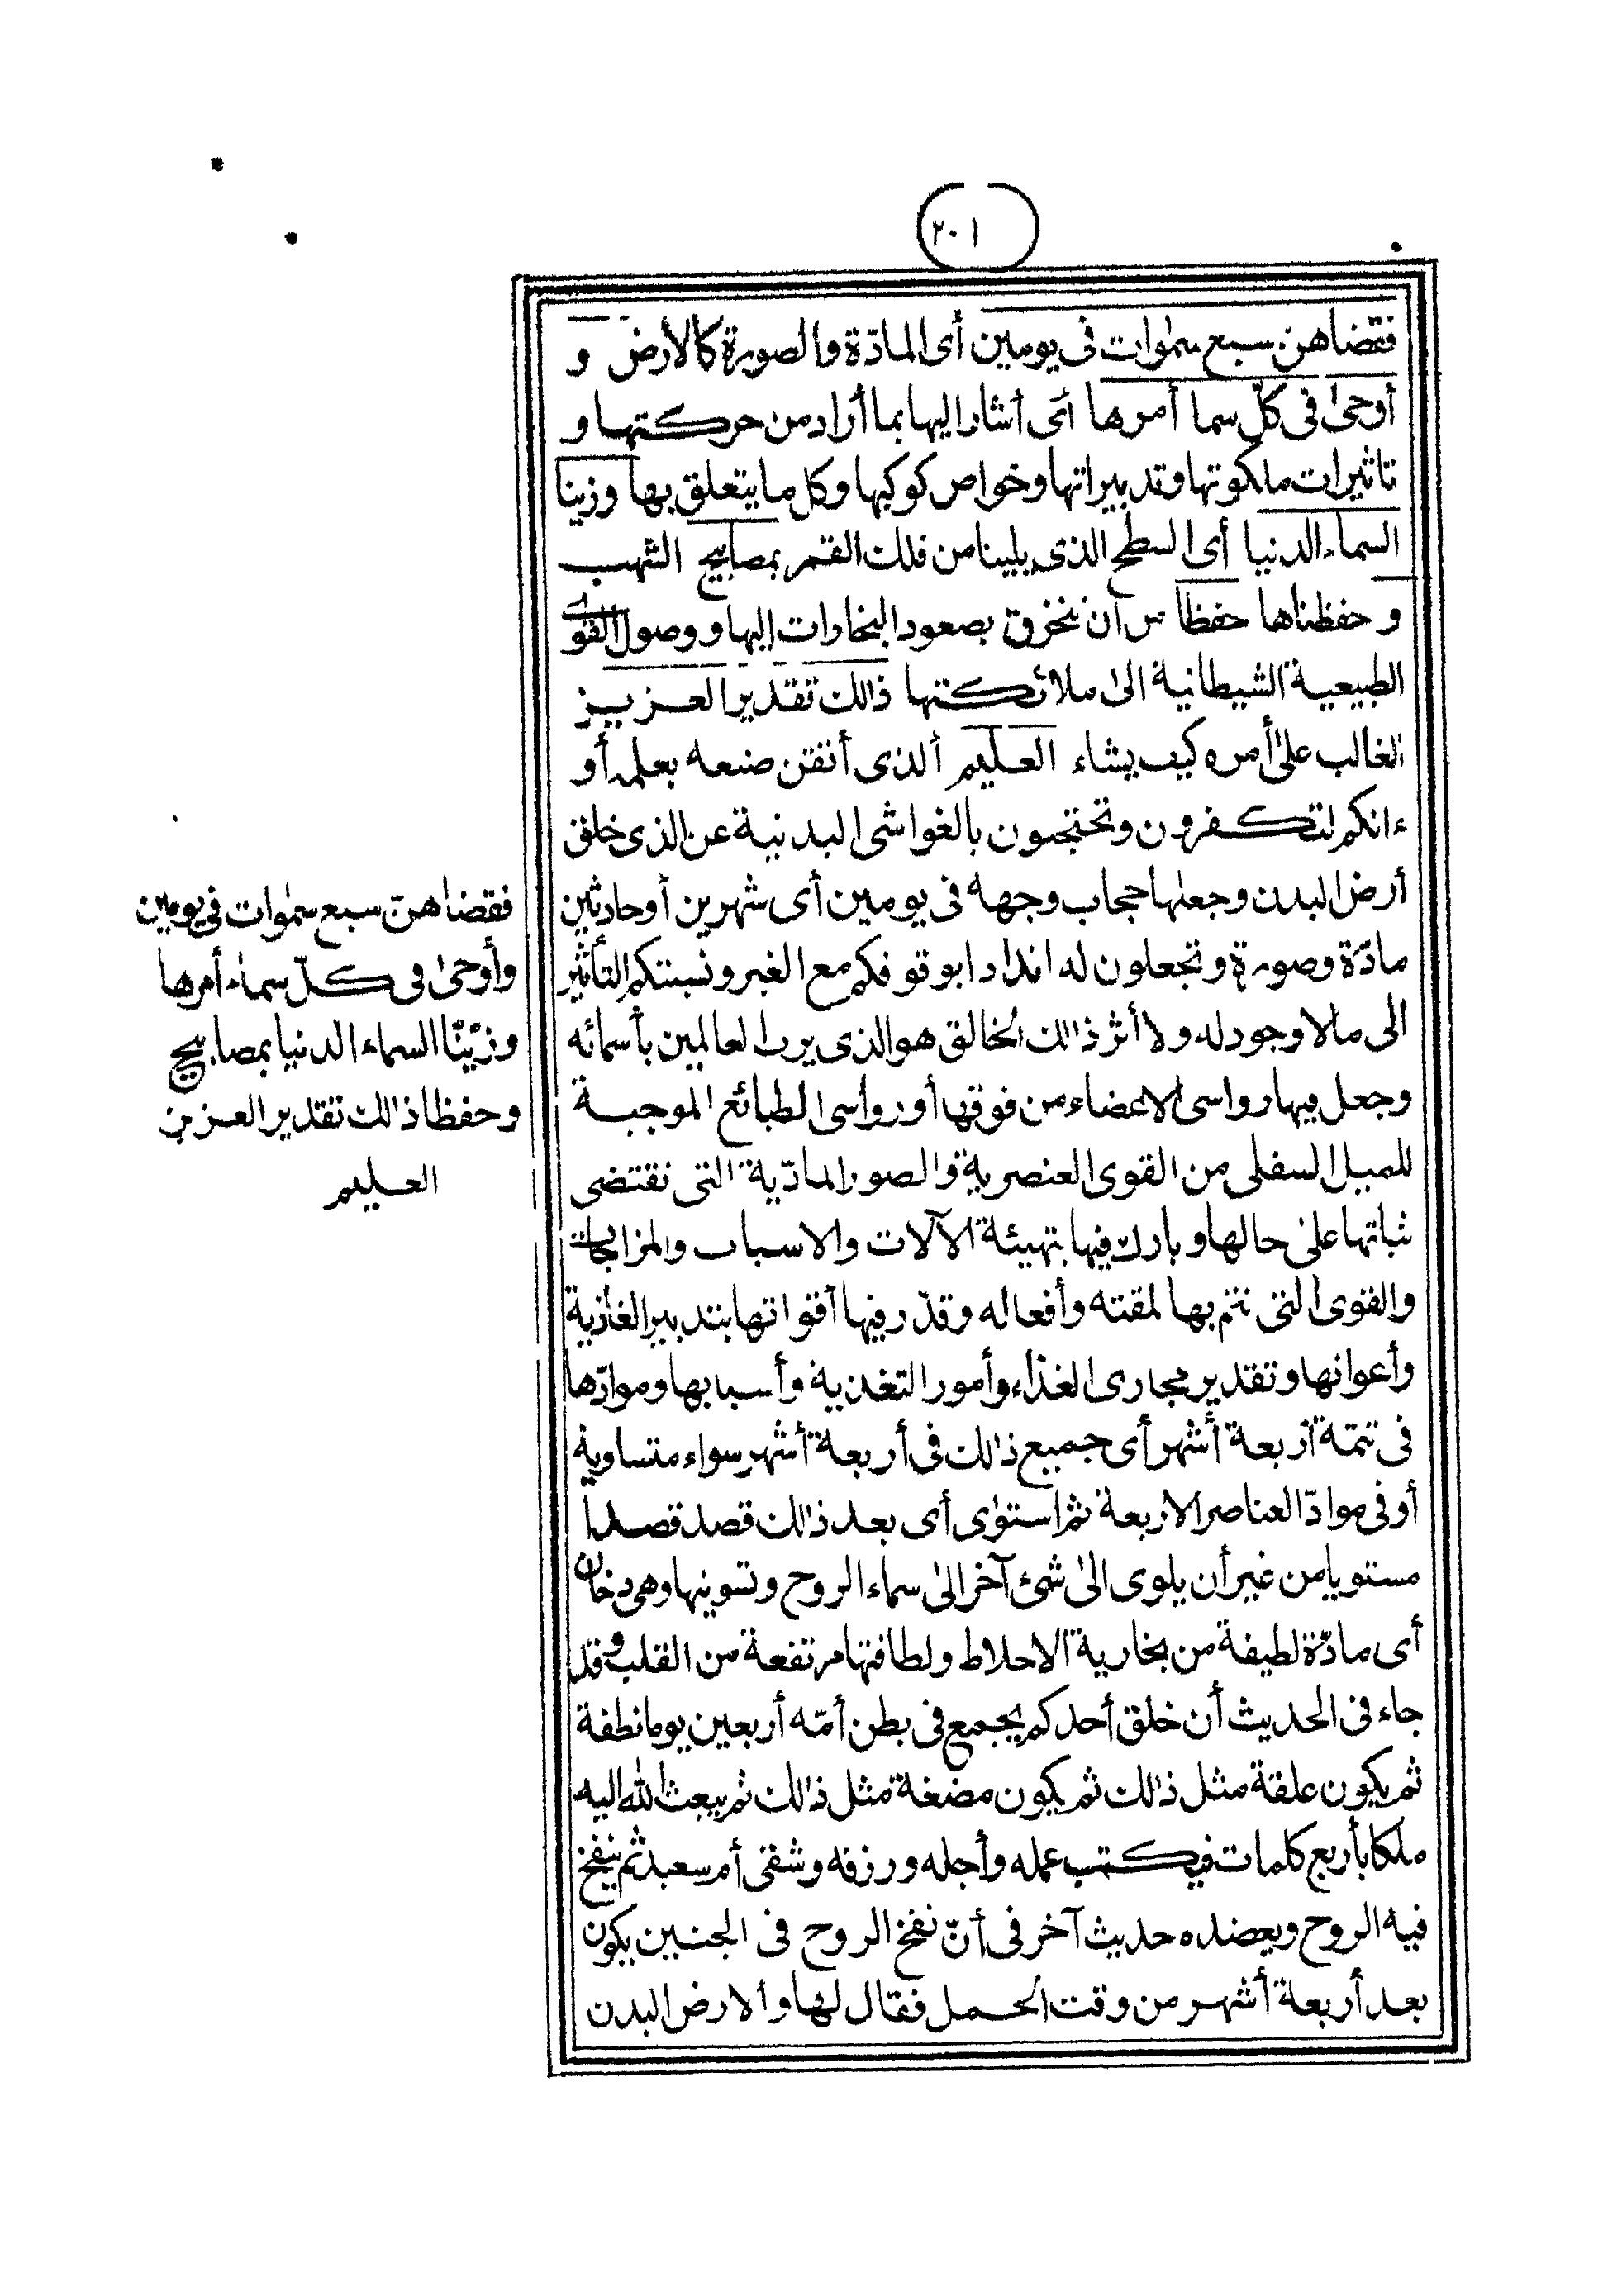 ٢٠١
فقضاهن سبع سمٰوات فى يومين أى المادّة والصورة كالأرض و
أوحىٰ فى كلّ سما أمرها أى أشار اليها بما أراد من حركتها و
تاثيرات ملكوتها وتدبيراتها وخواص كوكبها وكل ما يتعلق بها وزينا
السماء الدنيا أى السطح الذى يلينا من فلك القمر بمصابيح الشهب
و حفظناها حفظا من ان تنخرق بصعود البخارات إليها ووصول القوى
الطبيعية الشيطانية الىٰ ملائكتها ذٰلك تقدير العزيز
الغالب علىٰ أمره كيف يشاء العليم الذى أتقن صنعه بعلمه أو
ءانكم لتكفرون وتحتجبون بالغواشى البدنية عن الذى خلق
أرض البدن وجعلها حجاب وجهه فى يومين أى شهرين أو حادثين
مادّة وصورة وتجعلون له اندادا بوقوفكم مع الغير ونسبتكم التأثير
الى مالا وجود له ولا أثر ذٰلك الخالق هو الذى يرب العالمين بأسمائه
وجعل فيها رواسى الاعضاء من فوقها أو رواسى الطبائع الموجبة
للميل السفلى من القوى العنصرية والصور المادّية التى تقتضى
ثباتها علىٰ حالها وبارك فيها بتهيئة الآلات والاسباب والمزاجات
والقوى التى تتم بها لمقته وأفعاله وقدّر فيها أقواتها بتدبير الغاذية
وأعوانها وتقدير مجارى الغذاء وأمور التغذية وأسبابها وموادّها
فى تتمّة أربعة أشهر أى جميع ذٰلك فى أربعة أشهر سواء متساوية
أو فى موادّ العناصر الاربعة ثم استوٰى أى بعد ذٰلك قصد قصدا
مستويا من غير أن يلوى الىٰ شئ آخر الىٰ سماء الروح وتسويتها وهى دخان
أى مادّة لطيفة من بخارية الاخلاط ولطافتها مرتفعة من القلب وقد
جاء فى الحديث أن خلق أحدكم يجمع فى بطن أمّه أربعين يوما نطفة
ثم يكون علقة مثل ذٰلك ثم يكون مضغة مثل ذٰلك ثم يبعث الله اليه
ملكا بأربع كلمات فيكتب عمله وأجله ورزقه وشقى أم سعيد ثم ينفخ
فيه الروح ويعضده حديث آخر فى أنّ نفخ الروح فى الجنين يكون
بعد أربعة أشهر من وقت الحمل فقال لها والارض البدن
فقضاهنّ سبع سمٰوات فى يومين
وأوحىٰ فى كلّ سماء أمرها
وزيّنّا السماء الدنيا بمصابيح
وحفظا ذٰلك تقدير العزيز
العليم